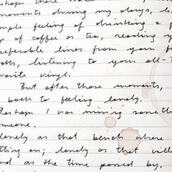 perhaps there
moments during my days, li
simple feeling of drinking a
up of coffee or tea, reading y
preferable lines from your f
ooks, listening to your all-t
vorite vinyl.
But after those moments,
back to feeling lonely.
Perhaps I was missing some th
omeone.
lonely as that bench where
tting on; lonely as that vill
nd as the time passed by,